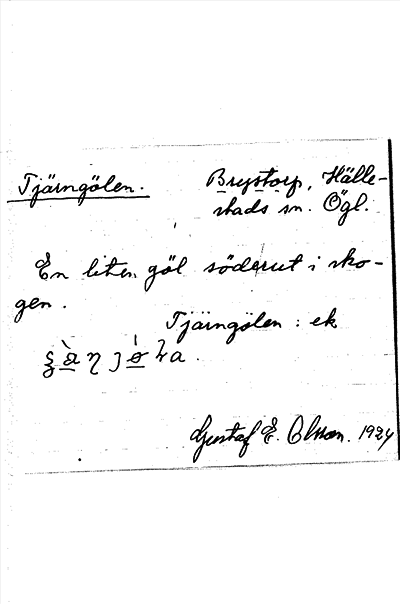 Tjärngölen. Brystorp, Hälle-
stads sn. Ögl.
En liten göl söderut i sko-
gen.
Tjärngölen : ek
Gustaf E. Olsson. 1924